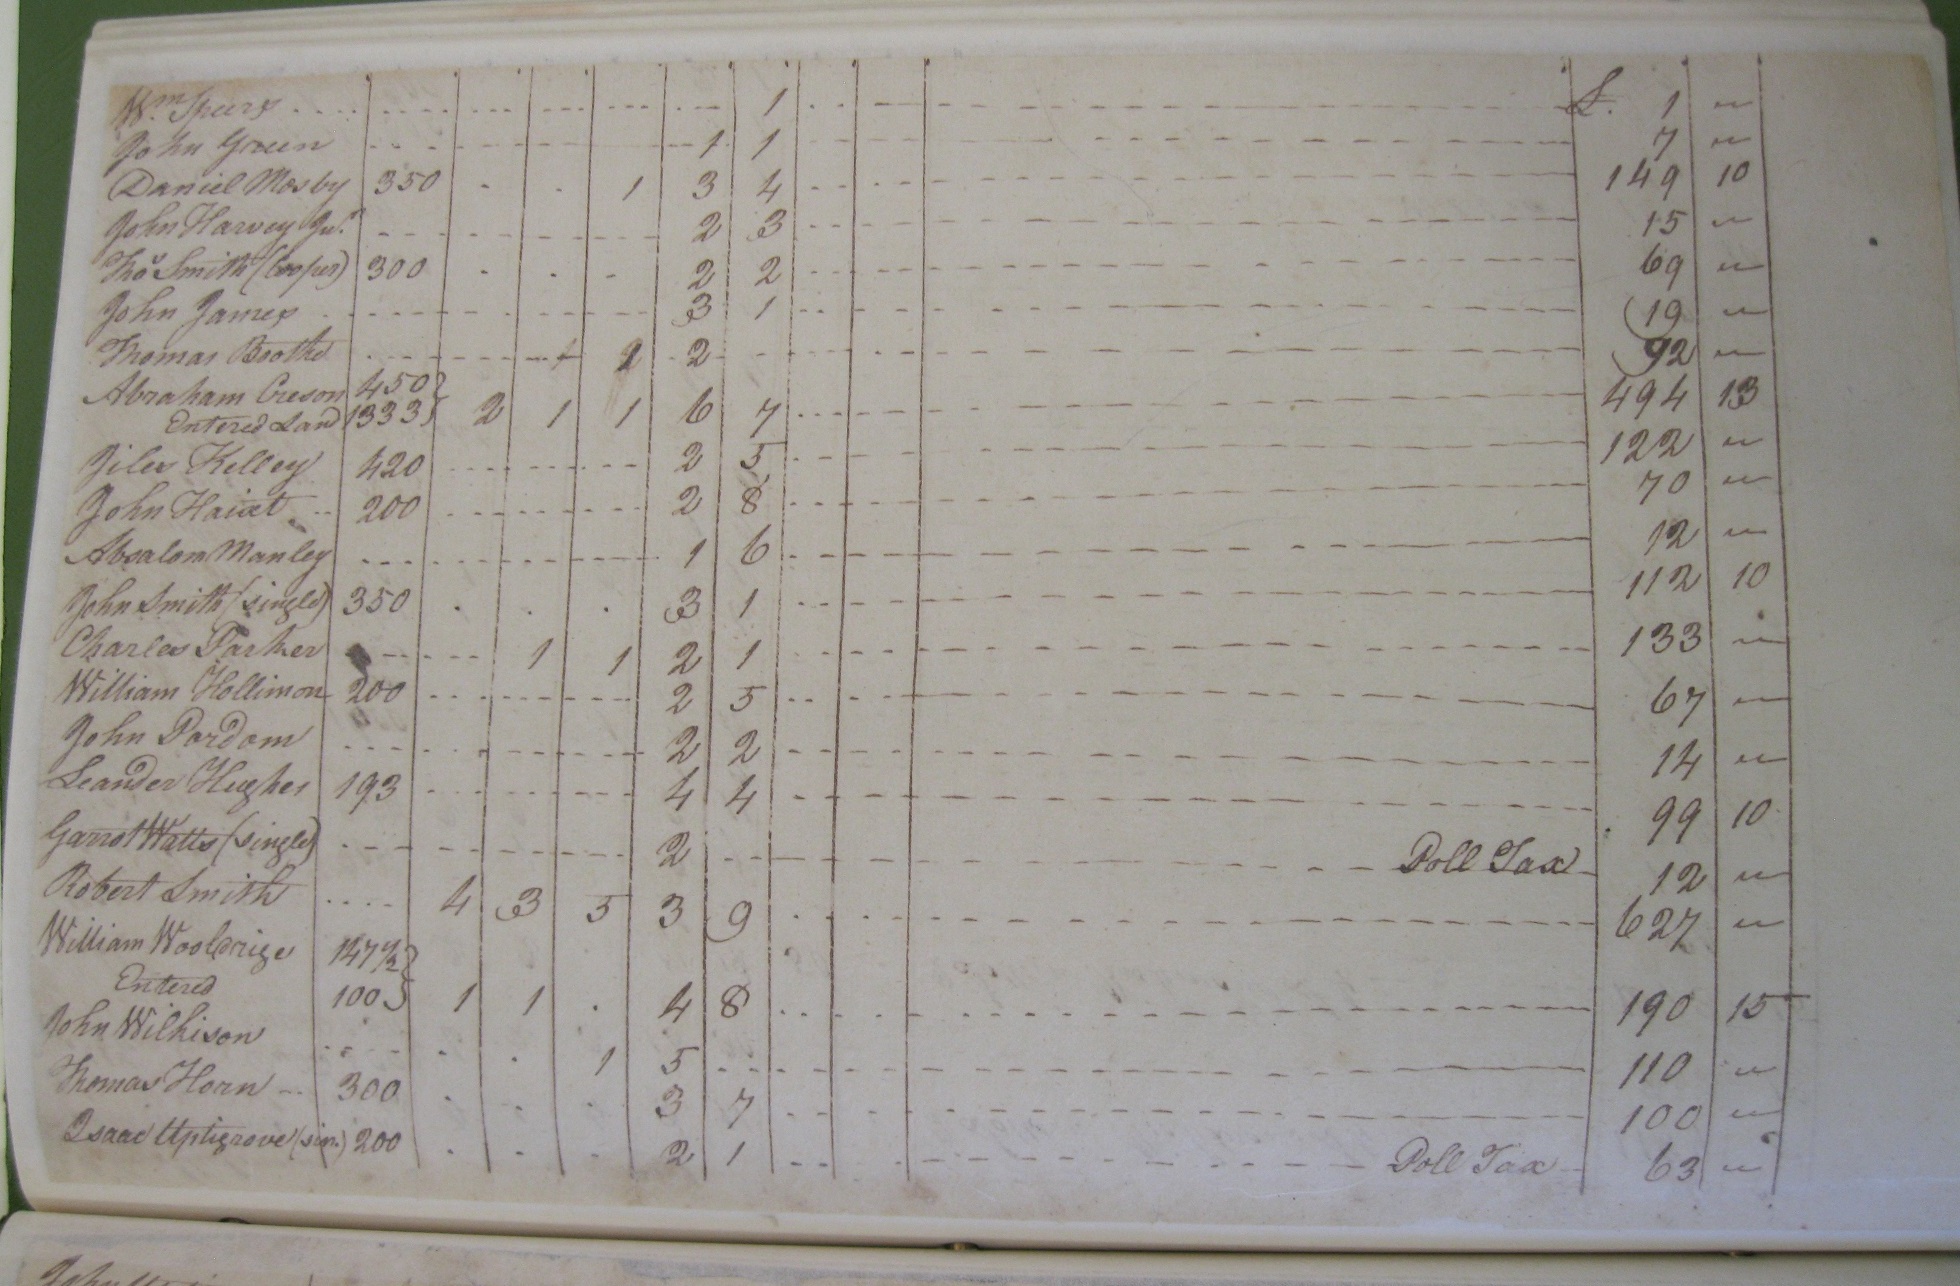 Wm. Speers 1 £. 1 "
John Green 1 1 7 "
Daniel Mosby 350 1 3 4 149 10
John Harvey Junr. 2 3 15 "
Thos Smith (Cooper) 300 2 2 69 "
John James 3 1 19 "
Thomas Boothe 2 92 "
Abraham Creson 450
Entered Land 1333 2 1 1 6 7 494 13
Giles Kelley 420 2 5 122 "
John Haiat 200 2 8 70 "
Absalom Manley 1 6 12 "
John Smith (single) 350 3 1 112 10
Charles Parker 1 1 2 1 133 "
William Hollimon 200 2 5 67 "
John Pordom 2 2 14 "
Leander Hughes 193 4 4 99 10
Garrot Watts (single) 2 Poll Tax 12 "
Robert Smith 4 3 5 3 9 627 "
William Wooldrige 147 1/2
Entered 100 1 1 4 8 190 15
John Wilkison 1 5 110 "
Thomas Horn 300 3 7 100 "
Isaac Uptigrove (sin.) 200 2 1 Poll Tax 63 "